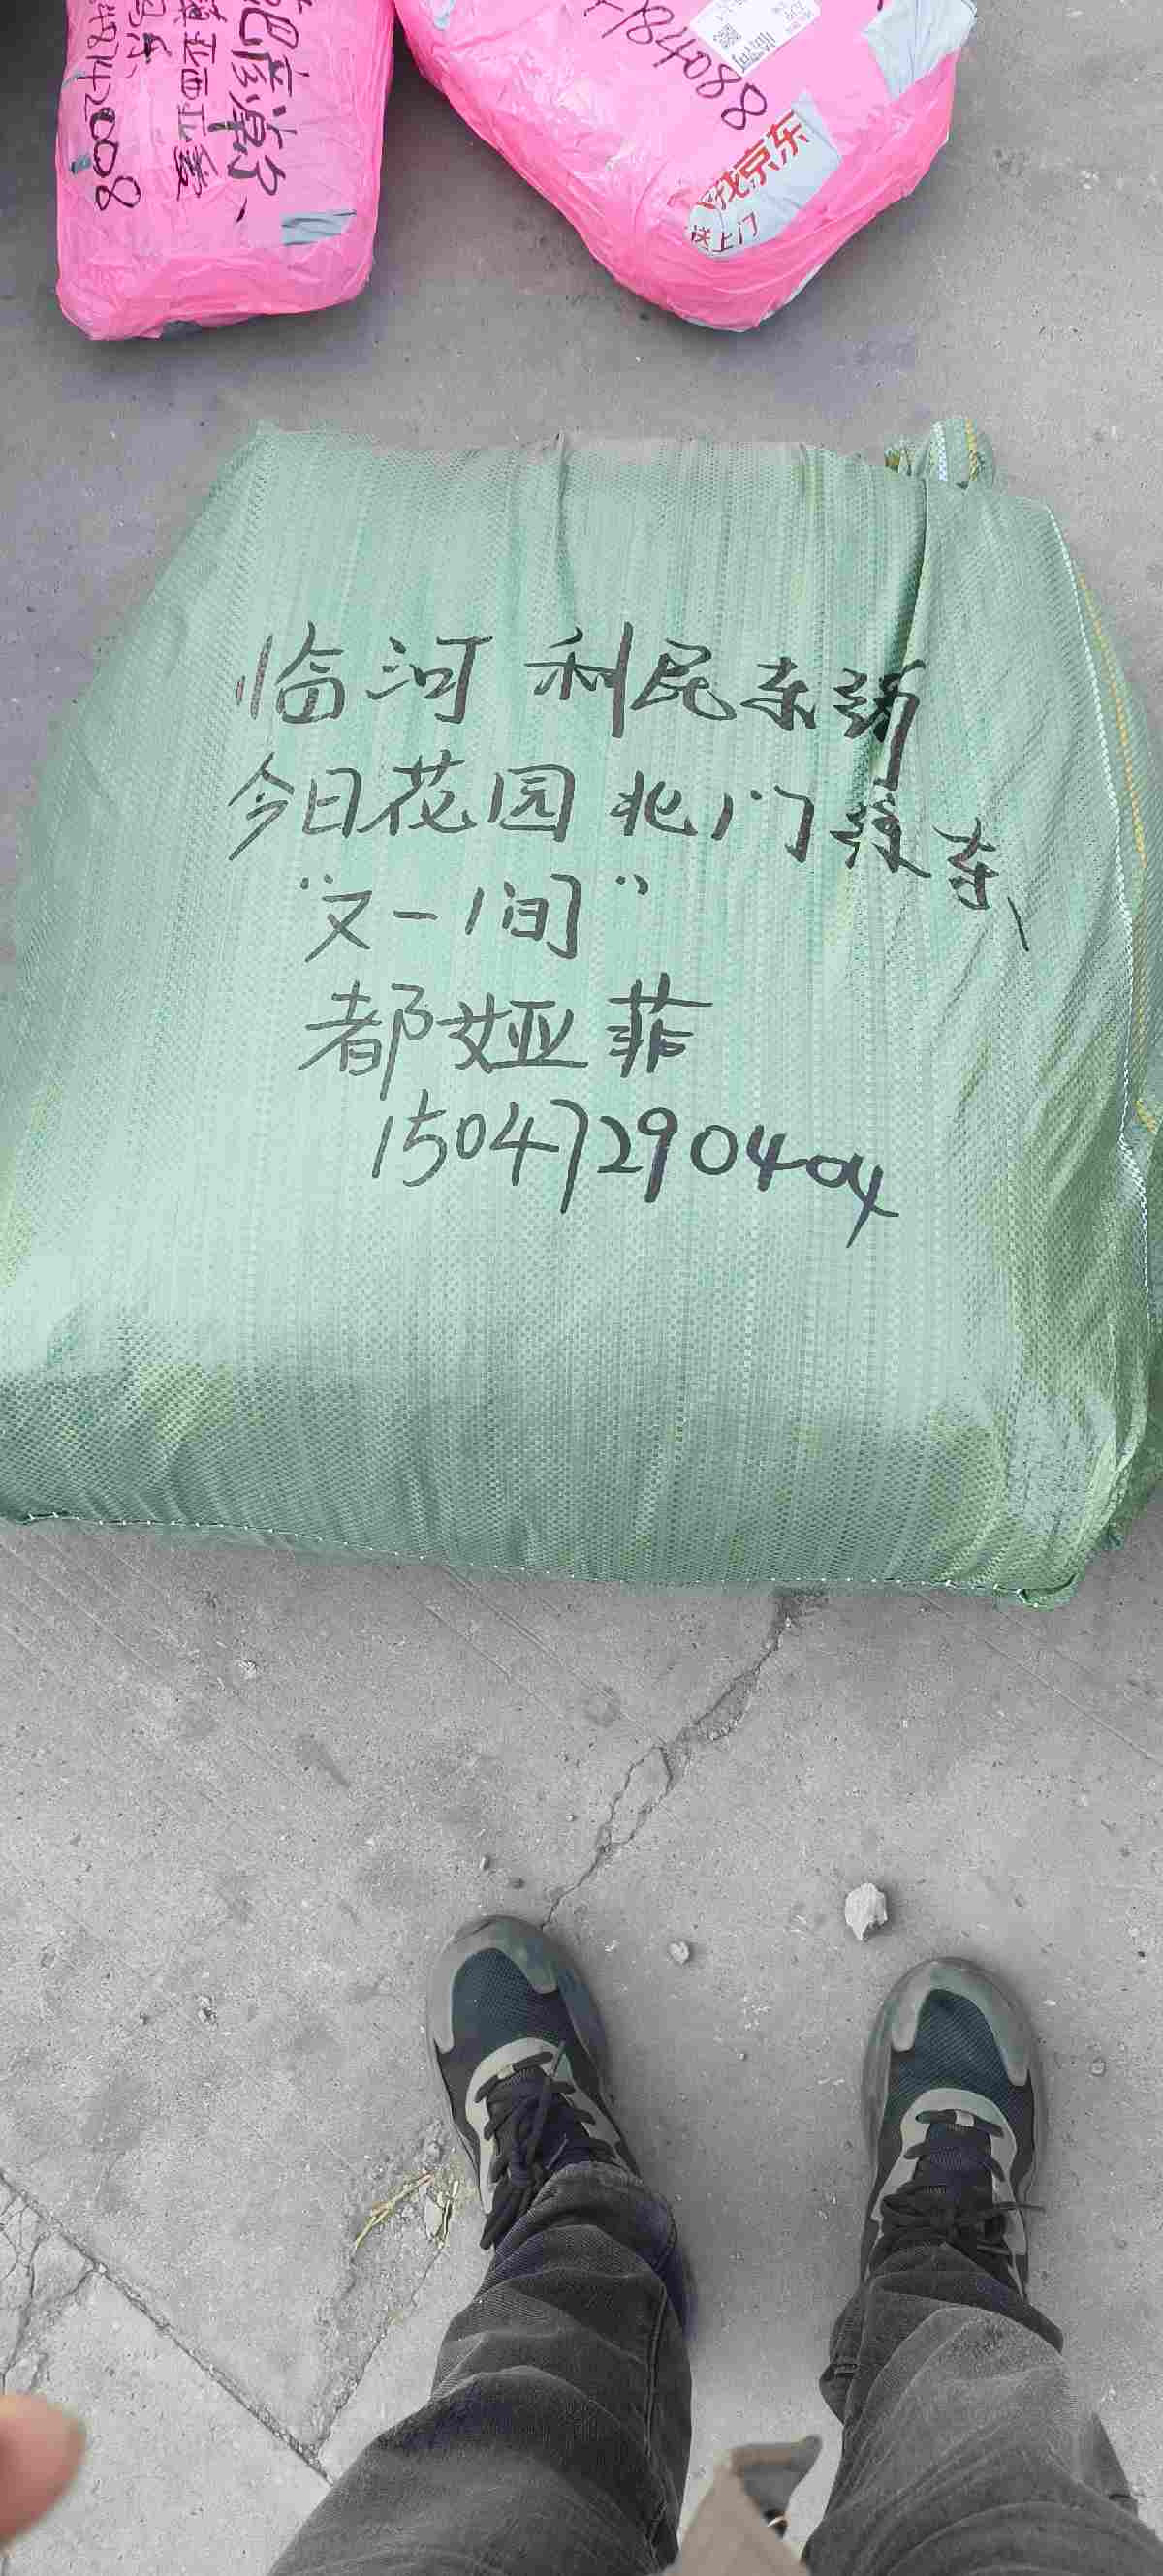 亚西亚
8142008
184088
找京东
送上门
临河 利民东街
今日花园北门 东
"又一间"
都娅菲
15047290404